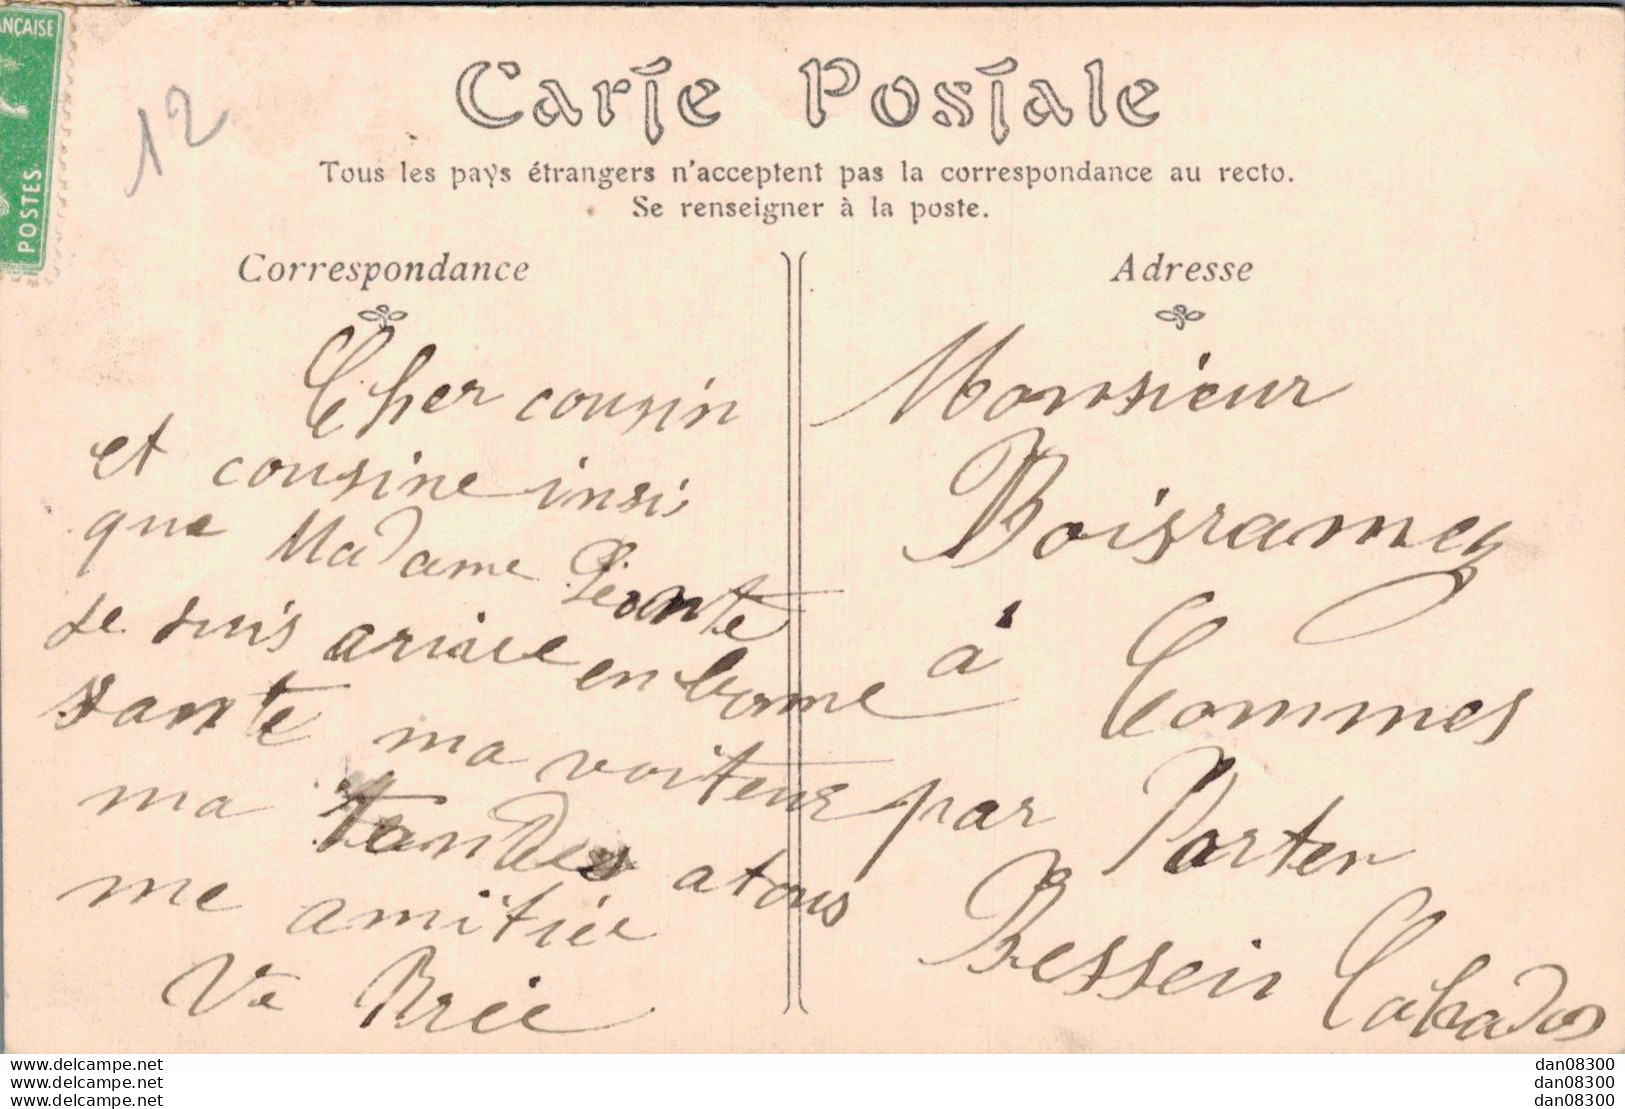 ANÇAISE
POSTES
12
Carte Postale
Tous les pays étrangers n'acceptent pas la correspondance au recto.
Se renseigner à la poste.
Correspondance
Cher cousin
et cousine insi
que Madame
Je suis arivee en bonne
sante ma voiteur
ma tandes a tous
me amitiée
Ve Brée
Adresse
Monsieur
Boisramey
à Commes
par Porten
Bessein Calvados
www.delcampe.net
www.delcampe.net
www.delcampe.net
dan08300
dan08300
dan08300